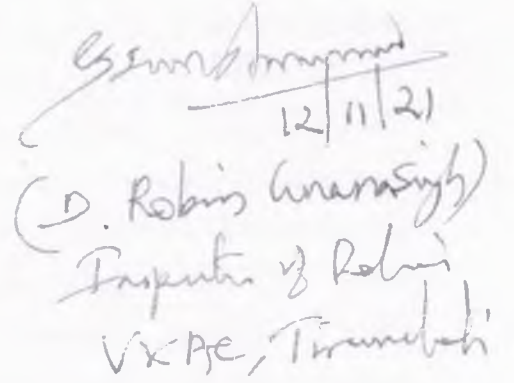 12/11/21
(D. Robins Gnanasingh)
Inspector of Police
V & AC, Tirunelveli